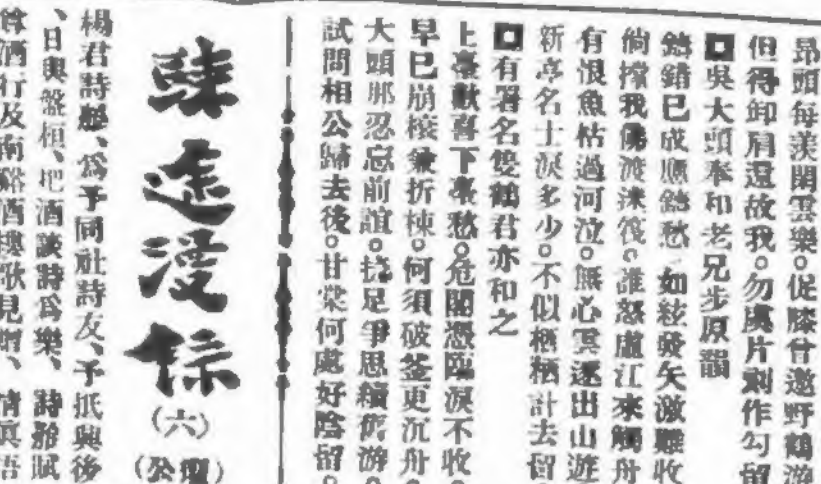 昂頭每羨閒雲樂。促膝曾邀野鶴游
但得卸肩還故我。勿虞片刻作勾留
吳大頭奉和老兄步原韻
錯已成應錯愁 如絃發矢激難收
倘撐我佛渡迷筏。誰怒盧江來觸舟
有恨魚枯過河泣。無心雲逐出山遊
新亭名士淚多少。不似栖栖計去留
有署名隻鶴君亦和之
上臺歡喜下臺愁。危閣憑臨淚不收。
早已崩榱兼折棟。何須破釜更沉舟。
大頭那忍忘前誼。捷足爭思續舊游。
試問相公歸去後。甘棠何處好陰留。
漫
(六)
楊君詩 、爲予同社詩友、予抵輿後
、日與盤桓、把酒談詩爲樂、詩 賦
酒行及南 酒樓歌見贈、情眞語